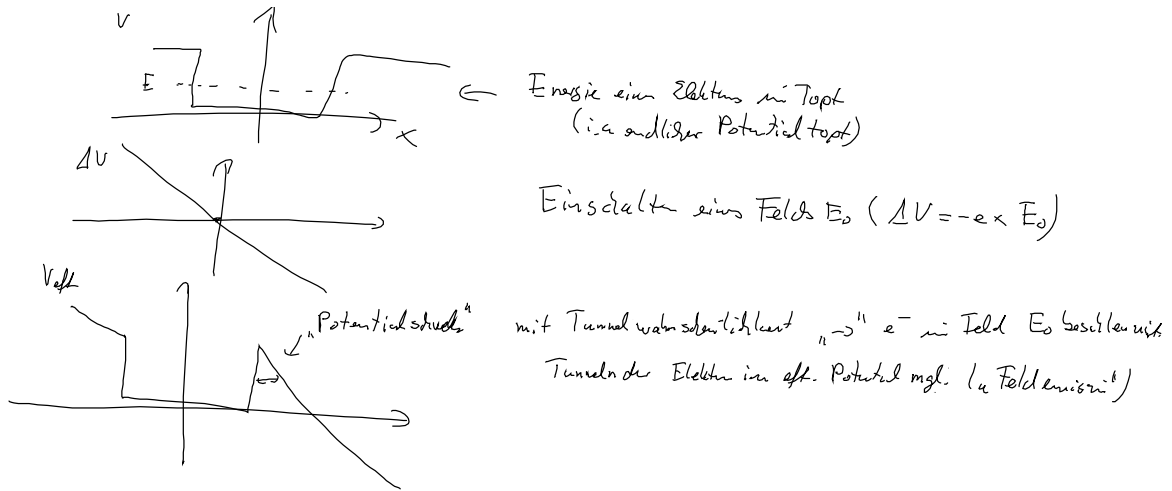 V
E
x
← Energie eines Elektrons im Topf
(i.a endlicher Potentialtopf)
ΔV
Einschalten eines Felds E₀ (ΔV = -e x E₀)
V eff
"Potentialschwelle"
mit Tunnelwahrscheinlichkeit "→" e⁻ im Feld E₀ beschleunigt
Tunneln der Elektron im eff. Potential mgl. ("Feldemission")